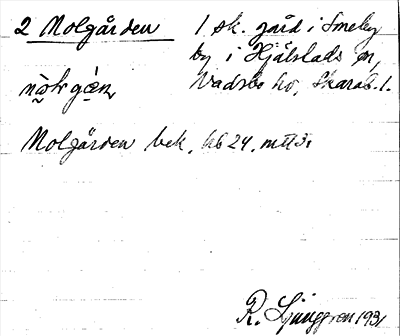 2 Molgården 1 sk. gård i Smeby
by i Hjälstads sn,
Vadsbo hd, Skarab. l.
Molgården bek. hb 24, mtl 3/
R. Ljunggren 1931